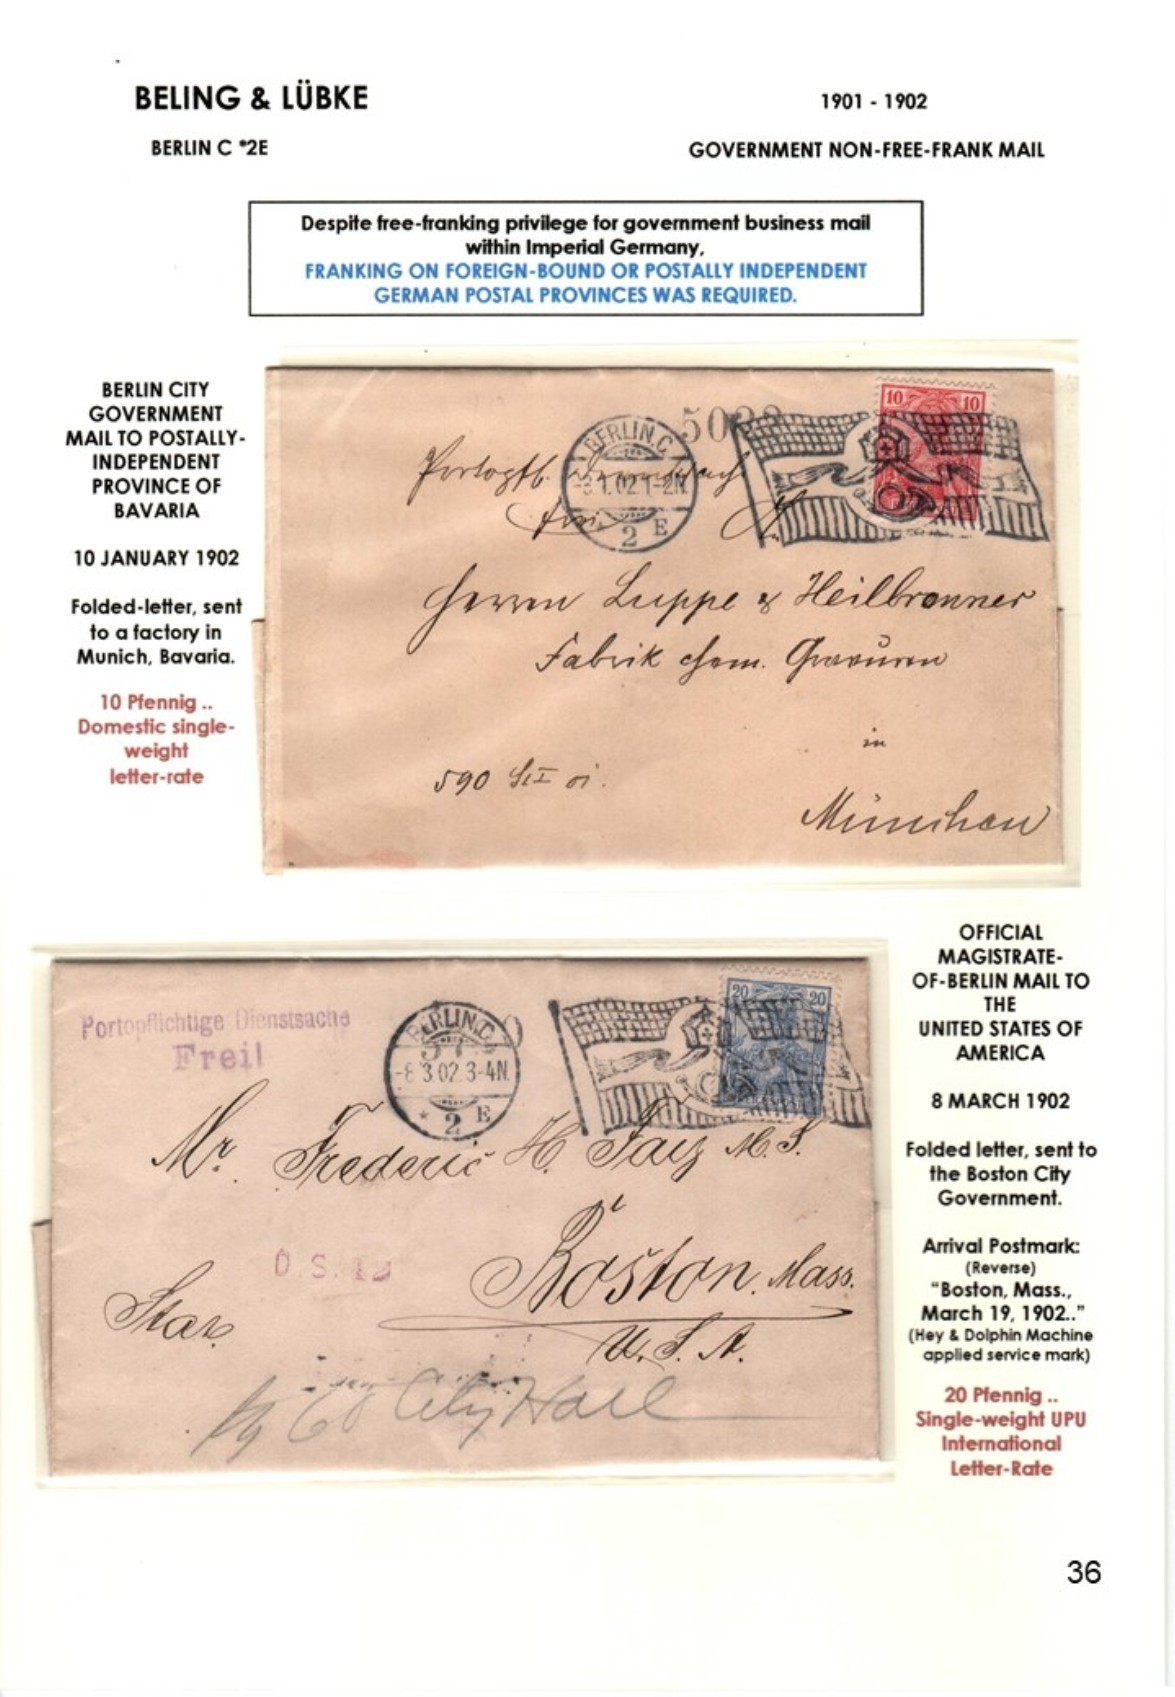 BELING & LÜBKE
1901 - 1902
BERLIN C *2E
GOVERNMENT NON-FREE-FRANK MAIL
Despite free-franking privilege for government business mail
within Imperial Germany,
FRANKING ON FOREIGN-BOUND OR POSTALLY INDEPENDENT
GERMAN POSTAL PROVINCES WAS REQUIRED.
BERLIN CITY
GOVERNMENT
MAIL TO POSTALLY-
INDEPENDENT
PROVINCE OF
BAVARIA
10 JANUARY 1902
Folded-letter, sent
to a factory in
Munich, Bavaria.
10 Pfennig ..
Domestic single-
weight
letter-rate
10 10
BERLIN.C.
1.02.1-2N.
2 E
Herren Luppe & Heilbronner
Fabrik chem. Gravüren
in
590
München
Portopflichtige Dienstsache
Frei!
20 20
BERLIN.C.
-8.3.02.3-4N.
* 2 E
Mr. Frederic H. Fay M. S.
Boston. Mass.
U. S. A.
City Hall
OFFICIAL
MAGISTRATE-
OF-BERLIN MAIL TO
THE
UNITED STATES OF
AMERICA
8 MARCH 1902
Folded letter, sent to
the Boston City
Government.
Arrival Postmark:
(Reverse)
"Boston, Mass.,
March 19, 1902.."
(Hey & Dolphin Machine
applied service mark)
20 Pfennig ..
Single-weight UPU
International
Letter-Rate
36